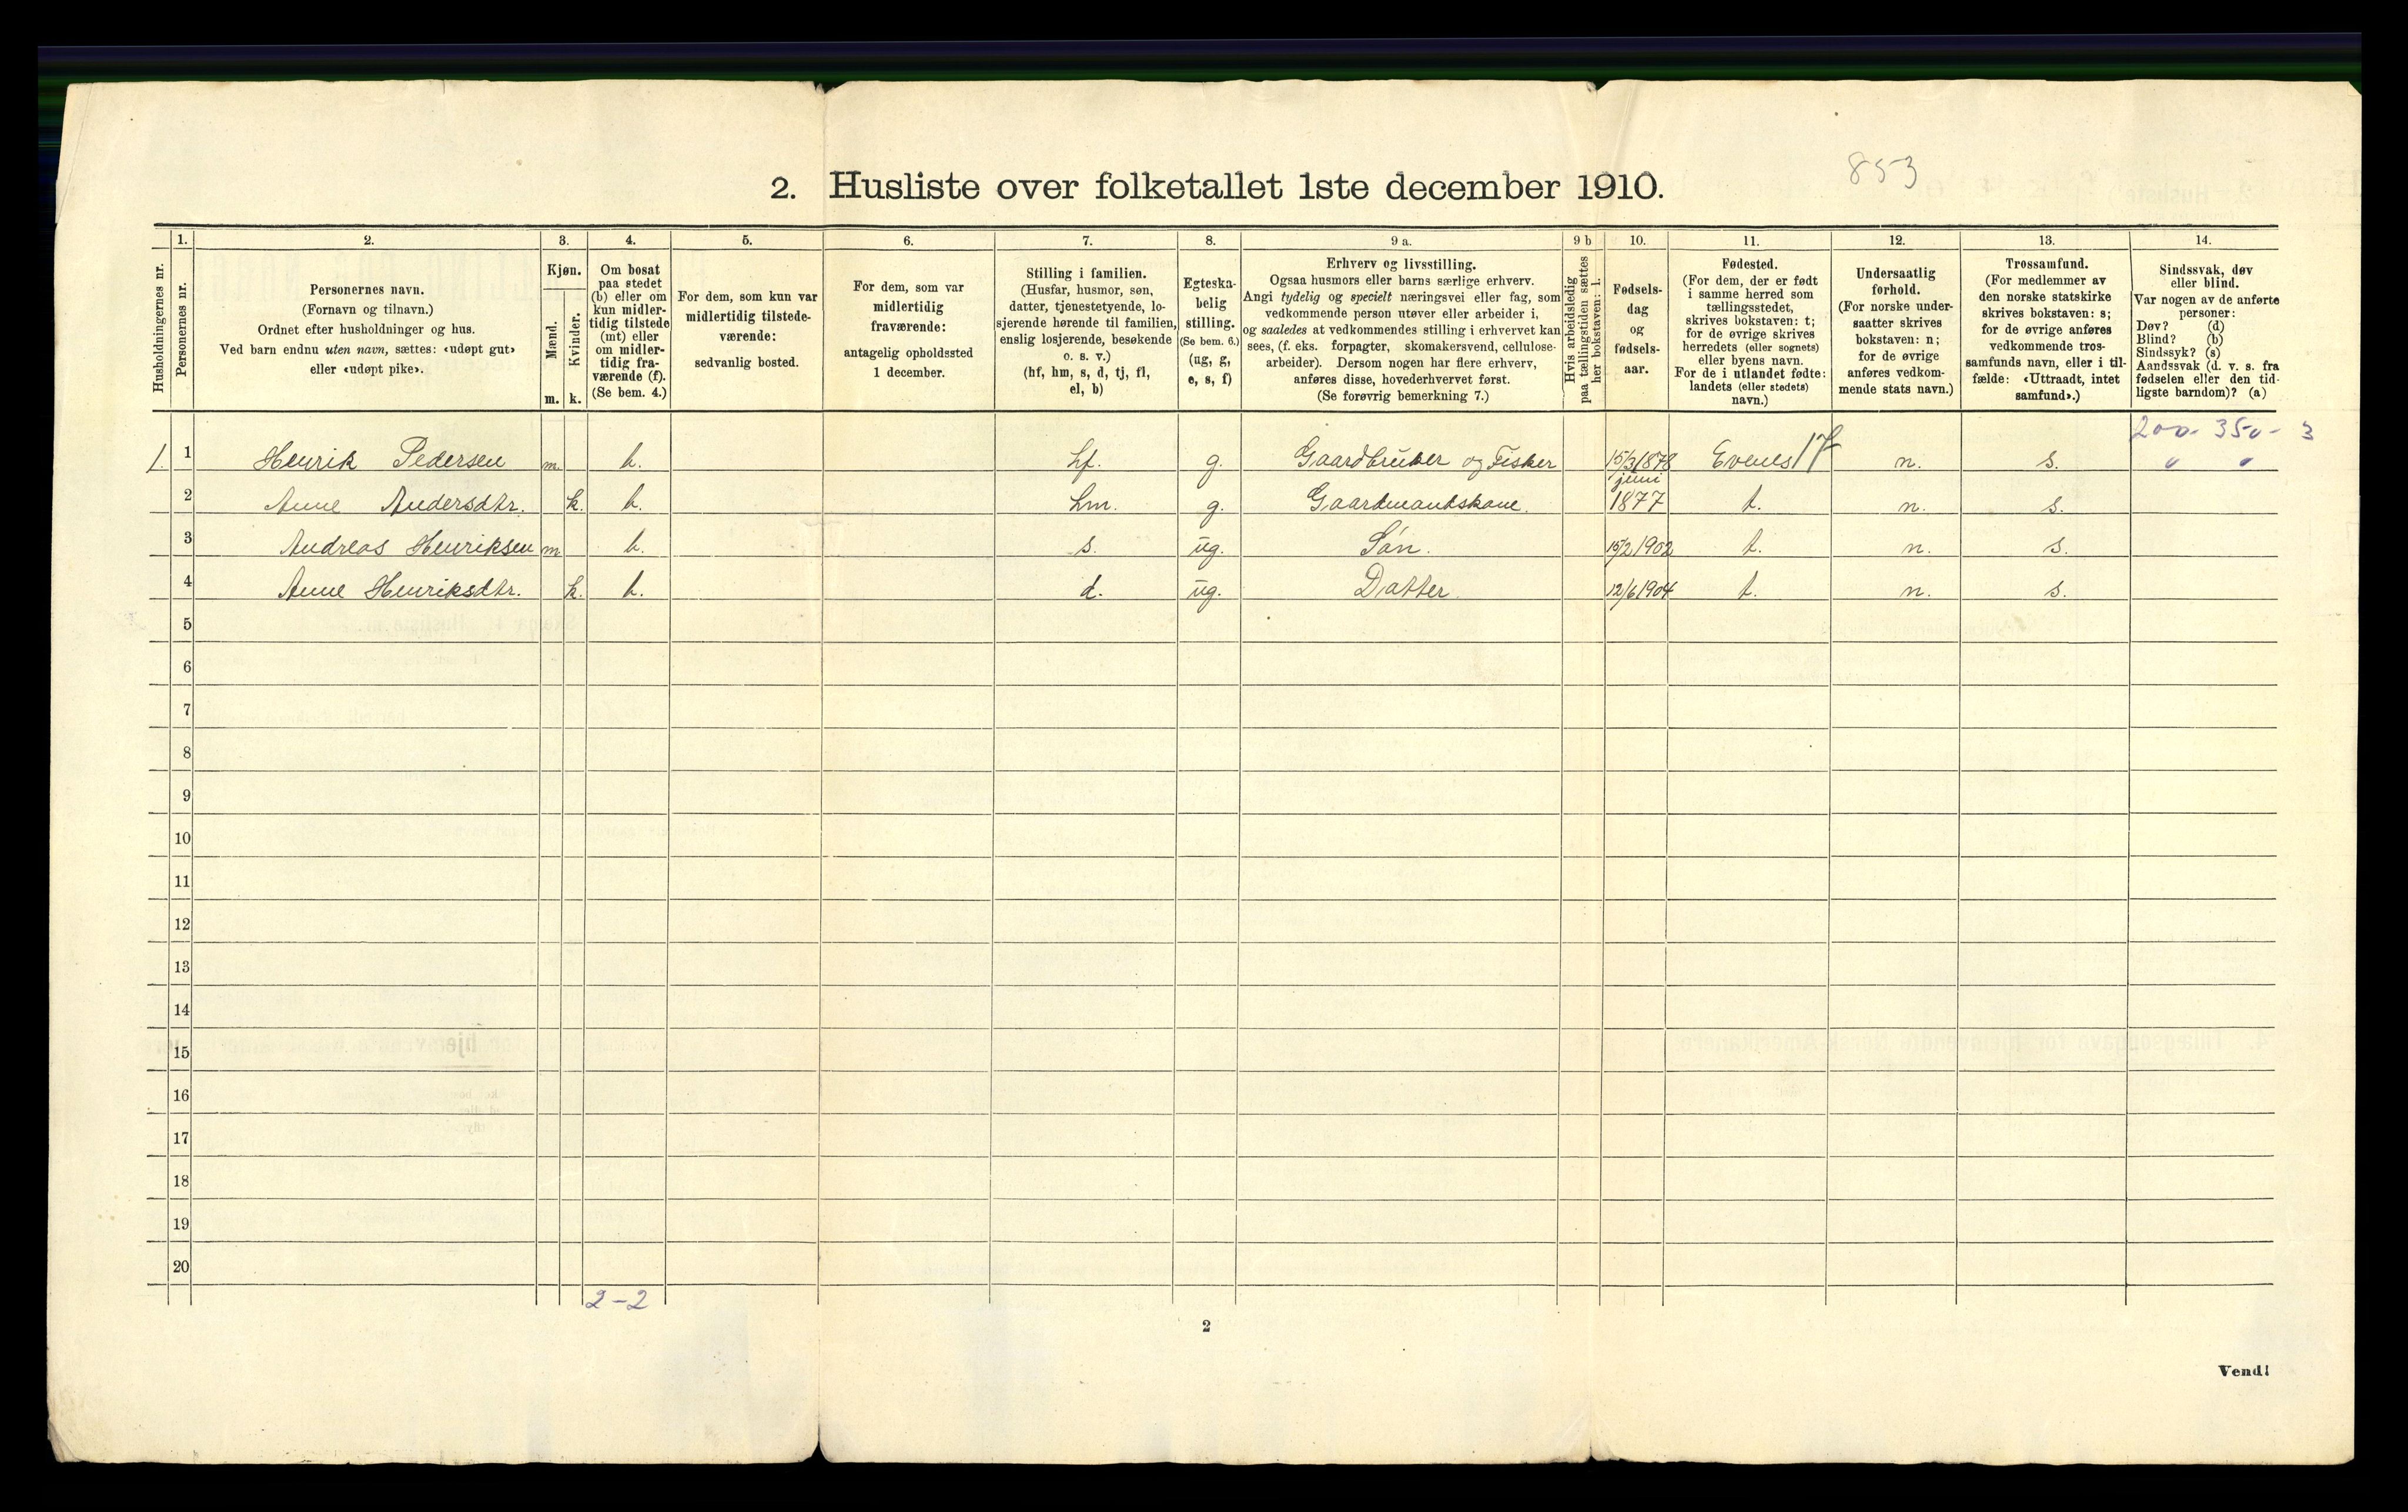 853
2. Husliste over folketallet 1ste december 1910.
1. 2. 3. 4. 5. 6. 7. 8. 9 a. 9 b 10. 11. 12. 13. 14.
Husholdningernes nr.
Personernes nr.
Personernes navn.
(Fornavn og tilnavn.)
Ordnet efter husholdninger og hus.
Ved barn endnu uten navn, sættes: «udøpt gut»
eller «udøpt pike».
Kjøn.
Mænd.
Kvinder.
m. k.
Om bosat
paa stedet
(b) eller om
kun midler-
tidig tilstede
(mt) eller
om midler-
tidig fra-
værende (f).
(Se bem. 4.)
For dem, som kun var
midlertidig tilstede-
værende:
sedvanlig bosted.
For dem, som var
midlertidig
fraværende:
antagelig opholdssted
1 december.
Stilling i familien.
(Husfar, husmor, søn,
datter, tjenestetyende, lo-
sjerende hørende til familien,
enslig losjerende, besøkende
o. s. v.)
(hf, hm, s, d, tj, fl,
el, b)
Egteska-
belig
stilling.
(Se bem. 6.)
(ug, g,
e, s, f)
Erhverv og livsstilling.
Ogsaa husmors eller barns særlige erhverv.
Angi tydelig og specielt næringsvei eller fag, som
vedkommende person utøver eller arbeider i,
og saaledes at vedkommendes stilling i erhvervet kan
sees, (f. eks. forpagter, skomakersvend, cellulose-
arbeider). Dersom nogen har flere erhverv,
anføres disse, hovederhvervet først.
(Se forøvrig bemerkning 7.)
Hvis arbeidsledig
paa tællingstiden sættes
her bokstaven: l.
Fødsels-
dag
og
fødsels-
aar.
Fødested.
(For dem, der er født
i samme herred som
tællingsstedet,
skrives bokstaven: t;
for de øvrige skrives
herredets (eller sognets)
eller byens navn.
For de i utlandet fødte:
landets (eller stedets)
navn.)
Undersaatlig
forhold.
(For norske under-
saatter skrives
bokstaven: n;
for de øvrige
anføres vedkom-
mende stats navn.)
Trossamfund.
(For medlemmer av
den norske statskirke
skrives bokstaven: s;
for de øvrige anføres
vedkommende tros-
samfunds navn, eller i til-
fælde: «Uttraadt, intet
samfund».)
Sindssvak, døv
eller blind.
Var nogen av de anførte
personer:
Døv? (d)
Blind? (b)
Sindssyk? (s)
Aandssvak (d. v. s. fra
fødselen eller den tid-
ligste barndom)? (a)
200- 350- 3
1. 1 Henrik Pedersen m. b. hf. g. Gaardbruker og Fisker 15/3 1878 Evenes 17 n. s. " "
2 Anne Andersdtr. k. b. hm. g. Gaardmandskone. juni 1877 t. n. s.
3 Andreas Henriksen m b. s. ug. Søn. 15/2 1902 t. n. s.
4 Anne Henriksdtr. k. b. d. ug. Datter. 12/6 1904 t. n. s.
5
6
7
8
9
10
11
12
13
14
15
16
17
18
19
20
2-2
2
Vend!